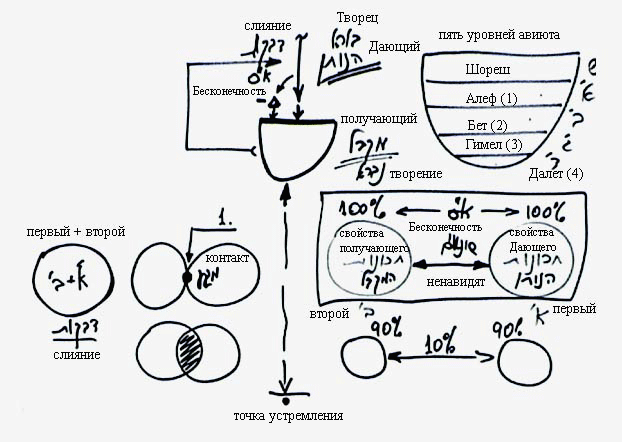 слияние
Творец
דבקות
א"ס
בורא
הנותן
Дающий
Бесконечность
получающий
מקבל
נברא
творение
пять уровней авиюта
Шореш
ש'
Алеф (1)
א'
Бет (2)
ב'
Гимел (3)
ג'
Далет (4)
ד'
первый + второй
א'+ב'
דבקות
слияние
1.
контакт
מגע
100% א"ס 100%
Бесконечность
свойства
получающего
תכונות
המקבל
שונאים
ненавидят
свойства
Дающего
תכונות
הנותן
второй ב'
א' первый
90% 10% 90%
точка устремления